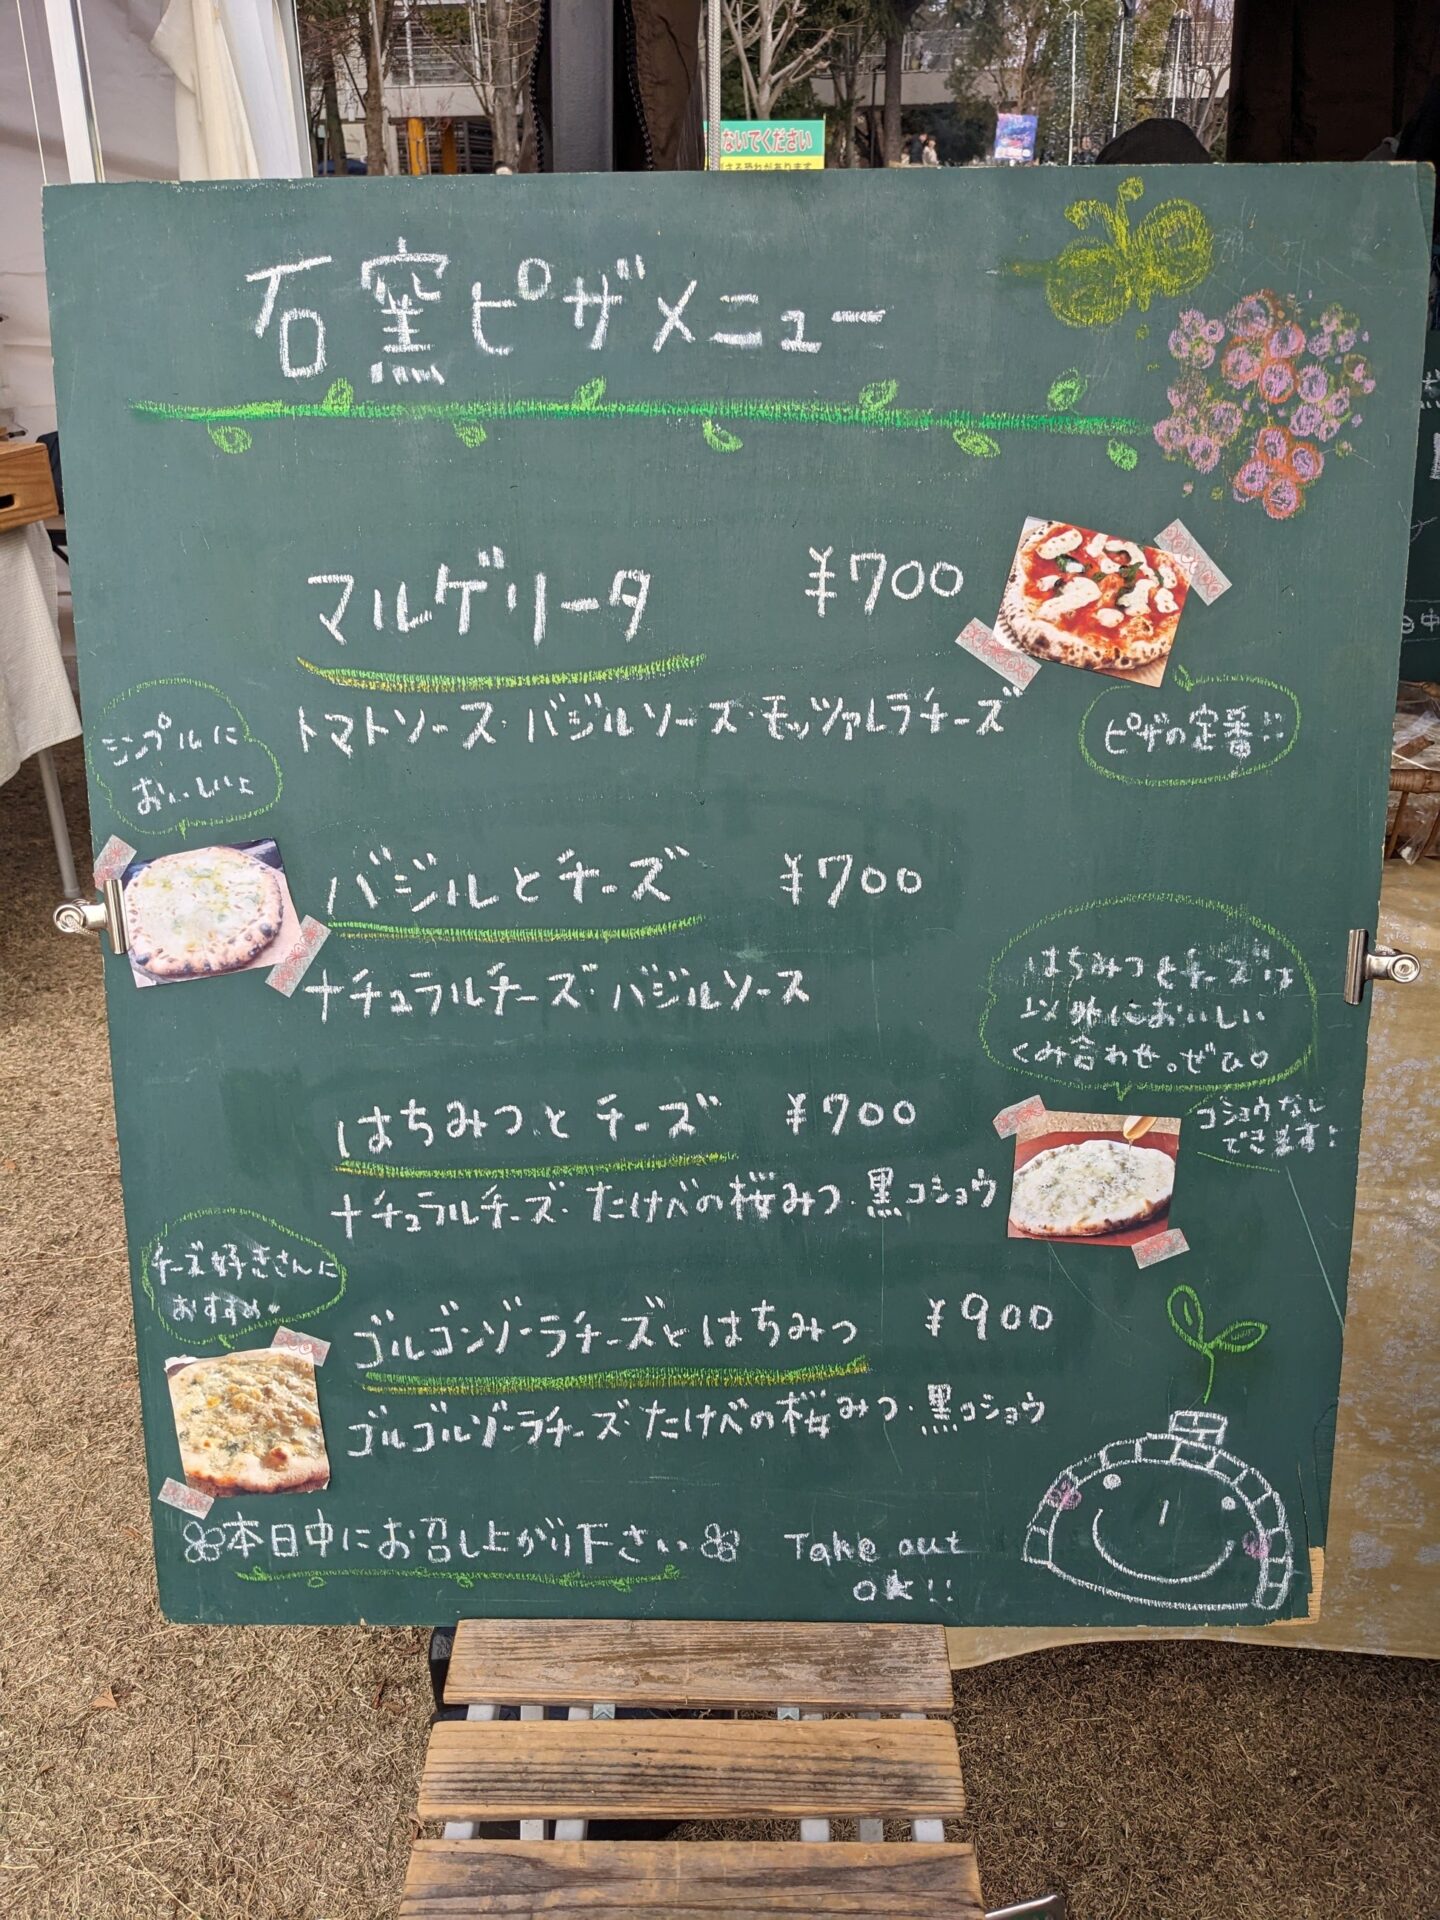 ないでください
石窯ピザメニュー
マルゲリータ ¥700
トマトソース・バジルソース・モッツァレラチーズ
ピザの定番!!
シンプルに
おいしいよ
バジルとチーズ ¥700
ナチュラルチーズ・バジルソース
はちみつとチーズは
以外においしい
くみ合わせ。ぜひ♡
はちみつとチーズ ¥700
コショウなし
できます!
ナチュラルチーズ・たけべの桜みつ・黒コショウ
チーズ好きさんに
おすすめ♥
ゴルゴンゾーラチーズとはちみつ ¥900
ゴルゴルゾーラチーズ・たけべの桜みつ・黒コショウ
本日中にお召し上がり下さい
Take out
ok!!